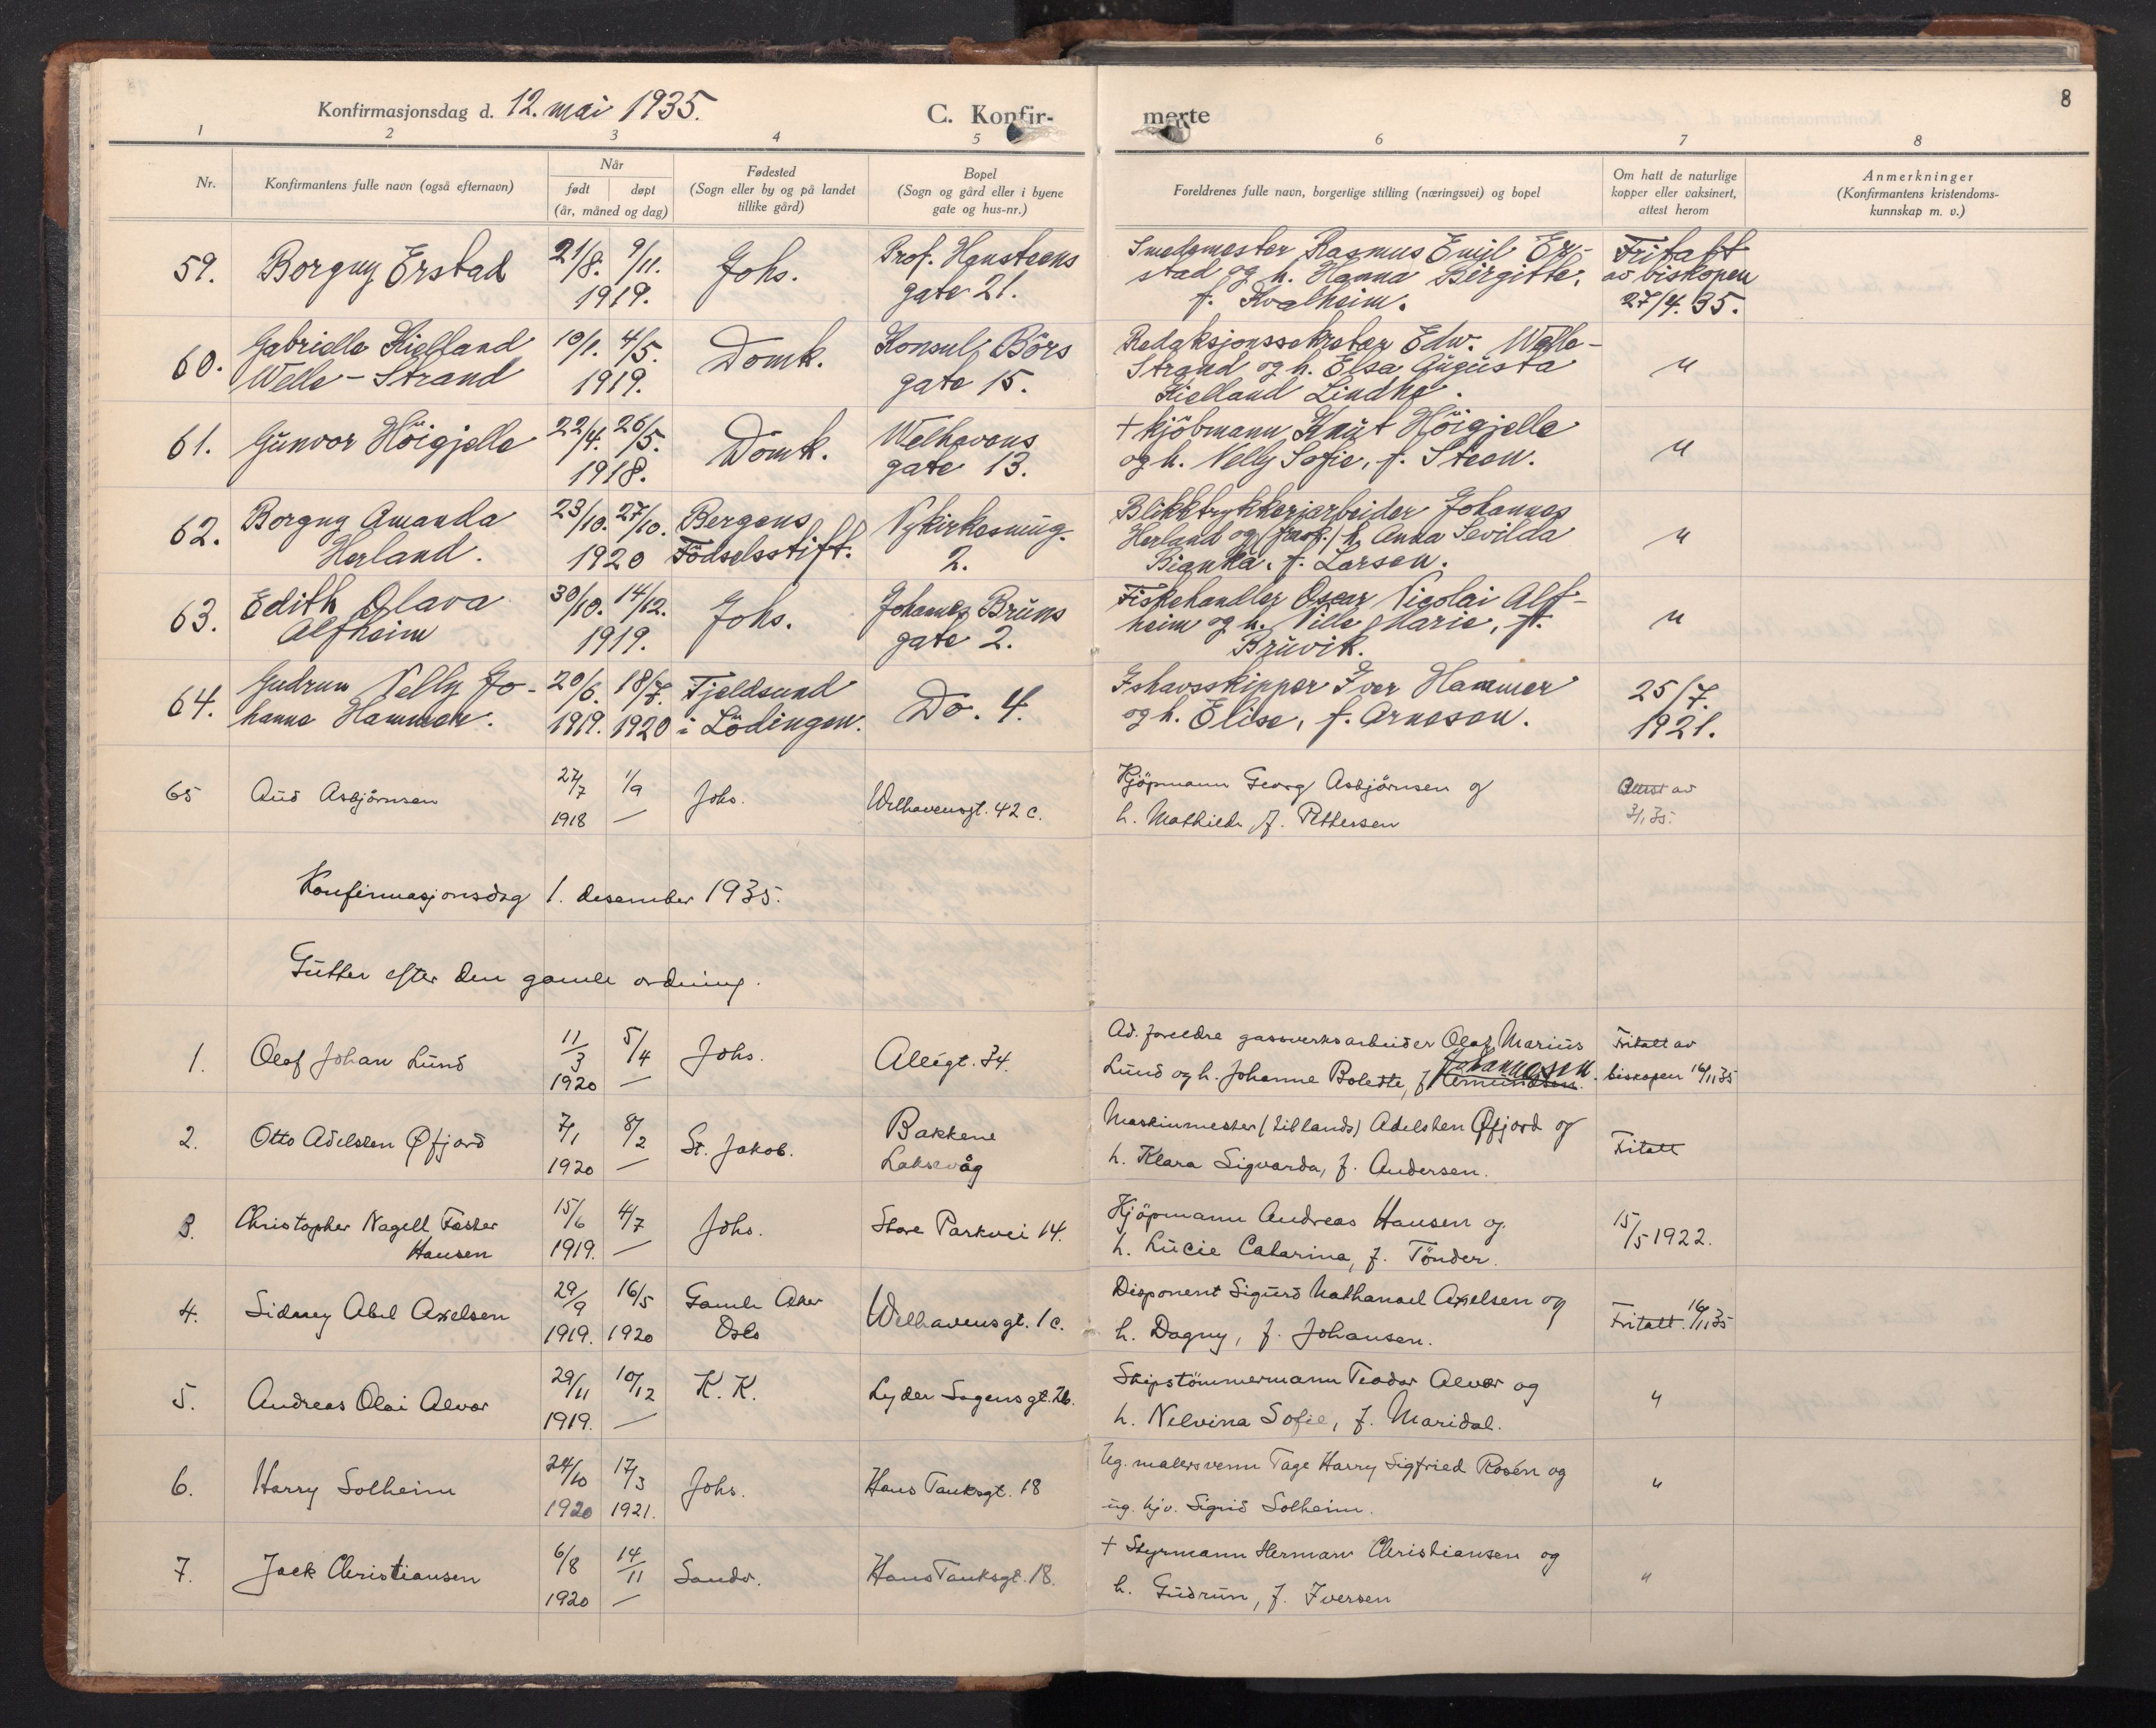 8
Konfirmasjonsdag d. 12. mai 1935.
C. Konfir-
merte
1 2 3 4 5 6 7 8
Nr.
Konfirmantens fulle navn (også efternavn)
Når
født døpt
(år, måned og dag)
Fødested
(Sogn eller by og på landet
tillike gård)
Bopel
(Sogn og gård eller i byene
gate og hus-nr.)
Foreldrenes fulle navn, borgerlige stilling (næringsvei) og bopel
Om hatt de naturlige
kopper eller vaksinert,
attest herom
Anmerkninger
(Konfirmantens kristendoms-
kunnskap m. v.)
59. Borgny Erstad
21/8. 9/11.
1919.
Johs.
Prof. Hansteens
gate 21.
Smedemester Rasmus Emil Er-
stad og h. Hanna Birgitte,
f. Kvalheim.
Fritatt
av biskopen
27/4. 35.
60. Gabrielle Kielland
Welle-Strand
10/1. 4/5.
1919.
Domk.
Konsul Börs
gate 15.
Redaksjonssekretær Edw. Welle-
Strand og h. Elsa Augusta
Kielland Lindhe.
"
61. Gunvor Höigjelle
22/4. 26/5.
1918.
Domk.
Welhavens
gate 13.
+ kjöbmann Knut Höigjelle
og h. Nelly Sofie, f. Steen.
"
62. Borgny Amanda
Herland.
23/10. 27/10.
1920
Bergens
Födselsstift.
Nykirkesmug.
2.
Blikktrykkeriarbeider Johannes
Herland og (frask.) h. Anna Sevilda
Bianka, f. Larsen.
"
63. Edith Olava
Alfheim
30/10. 14/12.
1919.
Johs.
Johannes Bruns
gate 2.
Fiskehandler Oscar Nicolai Alf-
heim og h. Nille Marie, f.
Bruvik.
"
64. Gudrun Nelly Jo-
hanne Hammer.
20/6. 18/7.
1919. 1920
Fjeldsund
i Lödingen.
Do. 4.
Ishavsskipper Iver Hammer
og h. Elise, f. Arnesen.
25/7.
1921.
65 Aud Asbjörnsen
27/7 1/9
1918 —
Johs.
Welhavensgt. 42 c.
Kjöpmann Georg Asbjörnsen og
h. Mathilde f. Pettersen
Attest av
3/1 35.
Konfirmasjonsdag 1. desember 1935.
Gutter efter den gamle ordning.
1. Olaf Johan Lund
11/3 5/4
1920 —
Johs.
Allégt. 34.
Ad. foreldre gassverksarbeider Olaf Marius
Lund og h. Johanne Bolette, f. Johannesen.
Fritatt av
biskopen 16/11 35
2. Otto Adelsten Øfjord
7/1 8/2
1920 —
St. Jakob.
Bakkene
Laksevåg
Maskinmester (tillands) Adelsten Øfjord og
h. Klara Sigvarda, f. Andersen.
Fritatt
3. Christopher Nagell Faster
Hansen
15/6 4/7
1919. —
Johs.
Store Parkvei 14.
Kjöpmann Andreas Hansen og
h. Lucie Catarina, f. Tönder.
15/5 1922.
4. Sidney Abel Axelsen
29/9 16/5
1919. 1920
Gamle Aker
Oslo
Welhavensgt. 1 c.
Disponent Sigurd Nathanael Axelsen og
h. Dagny, f. Johansen.
Fritatt. 16/11 35
5. Andreas Olai Alvær
29/11 10/12
1919. —
K. K.
Lyder Sagensgt. 26.
Skipstömmermann Teodor Alvær og
h. Nelvina Sofie, f. Maridal.
"
6. Harry Solheim
24/10 17/3
1920 1921.
Johs.
Hans Tanksgt. 18
Ug. malersvenn Tage Harry Sigfried Rosén og
ug. hjv. Sigrid Solheim.
"
7. Jack Christiansen
6/8 14/11
1920 —
Sandv.
Hans Tanksgt. 18.
+ Styrmann Herman Christiansen og
h. Gudrun, f. Iversen
"